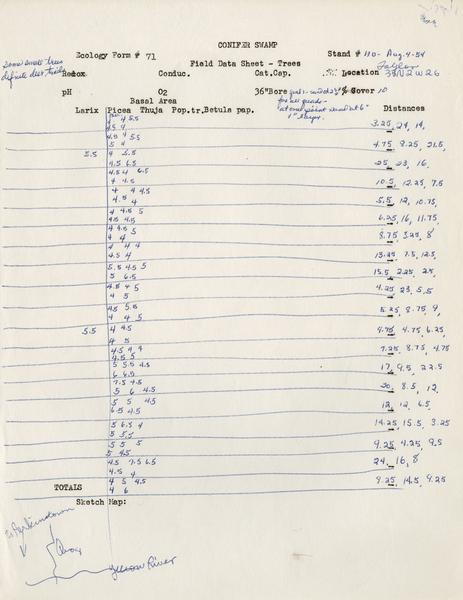 CONIFER SWAMP
Ecology Form # 71
Stand # 110- Aug. 4-54
Some small trees
definite deer trails
Field Data Sheet - Trees
Redox Conduc. Cat.Cap. Location 38N2W26
pH O2 36"Bore Cover 10
Basal Area
Larix Picea Thuja Pop.tr. Betula pap. Distances
4 4.5 5.5
4.5 4 3.25, 29, 14,
4 4.5 5.5
5 4 4.75 8.25, 21.5,
5.5 4 5.5
4.5 6.5 25, 23, 16,
4.5 4 6.5
4 4.5 10.5, 12.25, 7.5
4 4 4.5
4.5 4 5.5, 12, 10.75,
4 4.5 5
4.5 4.5 6.25, 16, 11.75
4 4.5 5
4 4 8.75 3.25, 8
4 4 4
4.5 4 13.25 7.5, 12.5,
5.5 4.5 5
5 6.5 15.5 2.25, 25,
4.5 4 5
4 5 4.25, 23, 5.5
4.5 5.5
4 4 5 5.25, 8.75 9,
5.5 4 4.5
4 5 4.75, 4.75 6.25,
4.5 4 4
4.5 5 7.25, 8.75, 4.75
5 5.5 4.5
6 6.5 17, 9.5, 22.5
7.5 4.5
5 6 4.5 20, 8.5, 12,
5 5 4.5
6.5 4.5 12, 12, 6.5,
5 6.5 4
5 5.5 14.25, 15.5, 3.25
5 5 5
5 4.5 9.25, 4.25, 9.5
4.5 7.5 6.5
4.5 4 24, 16, 8
4 5 4.5
TOTALS 4 6 9.25, 14.5, 9.25
Sketch Map:
River